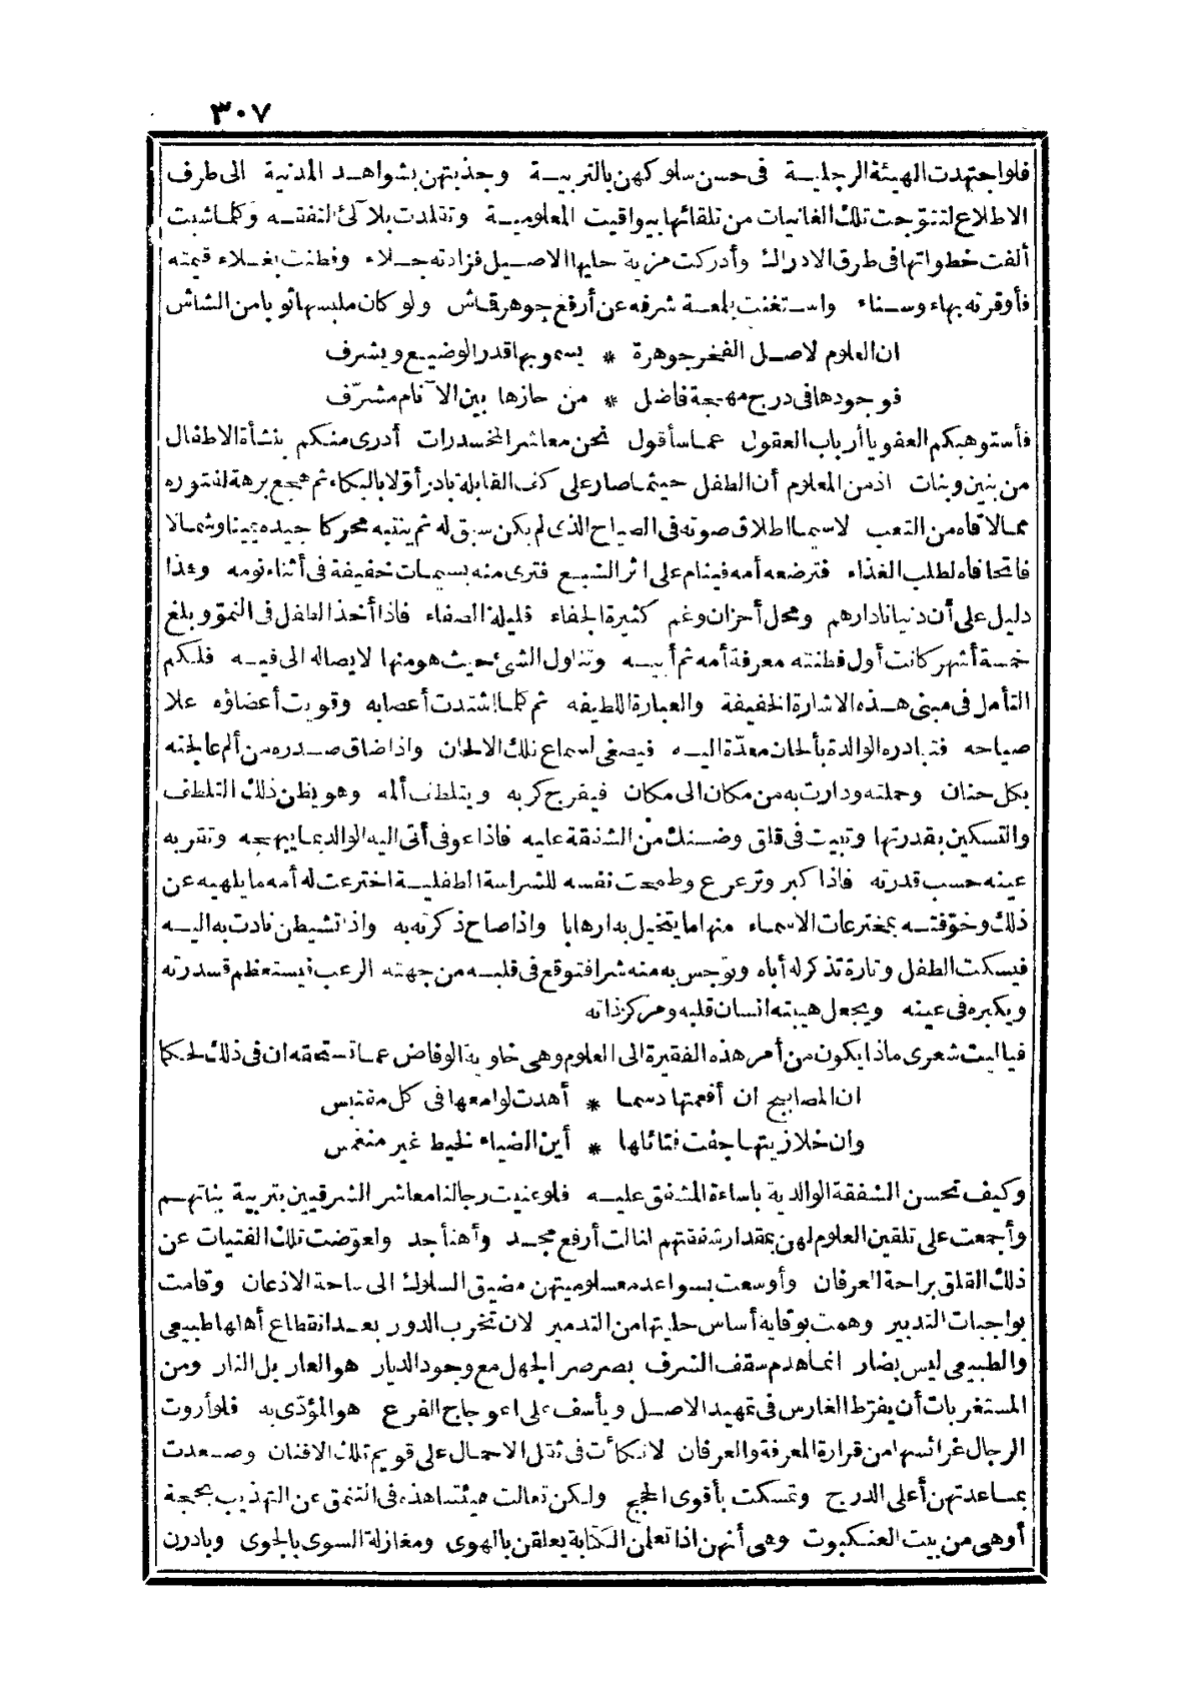 ٣٠٧
فلو اجتهدت الهيئة الرجلية في حسن سلوكهن بالتربية وجذبتهن بشواهد المدنية الى طرف
الاطلاع لتتوجت تلك الغانيات من تلقائها بيواقيت المعلومية وتقلدت بلآلئ التفقه وكلما شبت
ألفت خطواتها في طرق الادراك وأدركت مزية حليها الاصيل فزادته جلاء وفطنت بغلاء قيمته
فأوقرته بهاء وسناء واستغنت بلمعة شرفه عن أرفع جوهر قاش ولو كان ملبسها ثوبا من الشاش
ان العلوم لاصل الفخر جوهرة * يسمو بها قدر الوضيع ويشرف
فوجودها في درج مهجة فاضل * من حازها بين الآنام مشرّف
فأستوهبكم العفو يا أرباب العقول عما سأقول نحن معاشر المخدرات أدرى منكم بنشأة الاطفال
من بنين وبنات اذ من المعلوم أن الطفل حيثما صار على كف القابلة بادر أوّلا بالبكاء ثم هجع برهة لفتوره
مما لاقاه من التعب لاسيما اطلاق صوته في الصياح الذى لم يكن سبق له ثم ينتبه محركا جيده يمينا وشمالا
فاتحا فاه لطلب الغذاء فترضعه أمه فينام على اثر الشبع فترى منه بسيمات خفيفة في أثناء نومه وهذا
دليل على أن دنيانا دارهم ومحل أحزان وغم كثيرة الجفاء قليلة الصفاء فاذا أخذ الطفل في النموّ وبلغ
خمسة أشهر كانت أول فطنته معرفة أمه ثم أبيه وتناول الشئ حيث هو منها لايصاله الى فيه فلكم
التأمل في مبنى هذه الاشارة الخفيفة والعبارة اللطيفه ثم كلما اشتدت أعصابه وقويت أعضاؤه علا
صياحه فتبادره الوالدة بألحان معدّة اليه فيصغى لسماع تلك الالحان واذا ضاق صدره من ألم عالجته
بكل حنان وحملته ودارت به من مكان الى مكان فيفرج كربه ويتلطف ألمه وهو يظن ذلك التلطف
والتسكين بقدرتها وتبيت في قلق وضنك من الشفقة عليه فاذا عوفى أتى اليه الوالد بما يبهجه وتقر به
عينه حسب قدرته فاذا كبر وترعرع وطمحت نفسه للشراسة الطفلية اخترعت له أمه ما يلهيه عن
ذلك وخوّفته بمخترعات الاسماء منها ما يتخيل به ارهابا واذا صاح ذكرته به واذا تشيطن نادت به اليه
فيسكت الطفل وتارة تذكر له أباه وتوجس به منه شرا فتوقع في قلبه من جهته الرعب فيستعظم قدرته
ويكبره في عينه ويجعل هيبته انسان قلبه ومركز ذاته
فياليت شعرى ماذا يكون من أمر هذه الفقيرة الى العلوم وهى خاوية الوفاض عما تستحقه ان في ذلك لحكما
ان المصابيح ان أفعمتها دسما * أهدت لوامعها في كل مقتبس
وان خلا زيتها جفت فتائلها * أين الضياء لخيط غير منغمس
وكيف تحسن الشفقة الوالدية باساءة المشفق عليه فلو عنيت رجالنا معاشر الشرقيين بتربية بناتهم
وأجمعت على تلقين العلوم لهن بمقدار شفقتهم لنالت أرفع مجد وأهنأ جد ولعوّضت تلك الفتيات عن
ذلك القلق براحة العرفان وأوسعت بسواعد معلوميتهن مضيق السلوك الى ساحة الاذعان وقامت
بواجبات التدبير وهمت بوقاية أساس حليتها من التدمير لان تخرب الدور بعد انقطاع أهلها طبيعى
والطبيعى ليس بضار انما هدم سقف الشرف بصرصر الجهل مع وجود الديار هو العار بل النار ومن
المستغربات أن يفرّط الغارس في تمهيد الاصل ويأسف على اعوجاج الفرع هو المؤدّى به فلو أروت
الرجال غرائسها من قرارة المعرفة والعرفان لاتكأت في ثقل الاحمال على قويم تلك الافنان وصعدت
بمساعدتهن أعلى الدرج وتمسكت بأقوى الحجج ولكن تعالت هيئتنا هذه في التنمق عن التهذيب بحجة
أوهى من بيت العنكبوت وهى أنهن اذا تعلمن الكتابة يعلقن بالهوى ومغازلة السوى بالجوى وبادرن